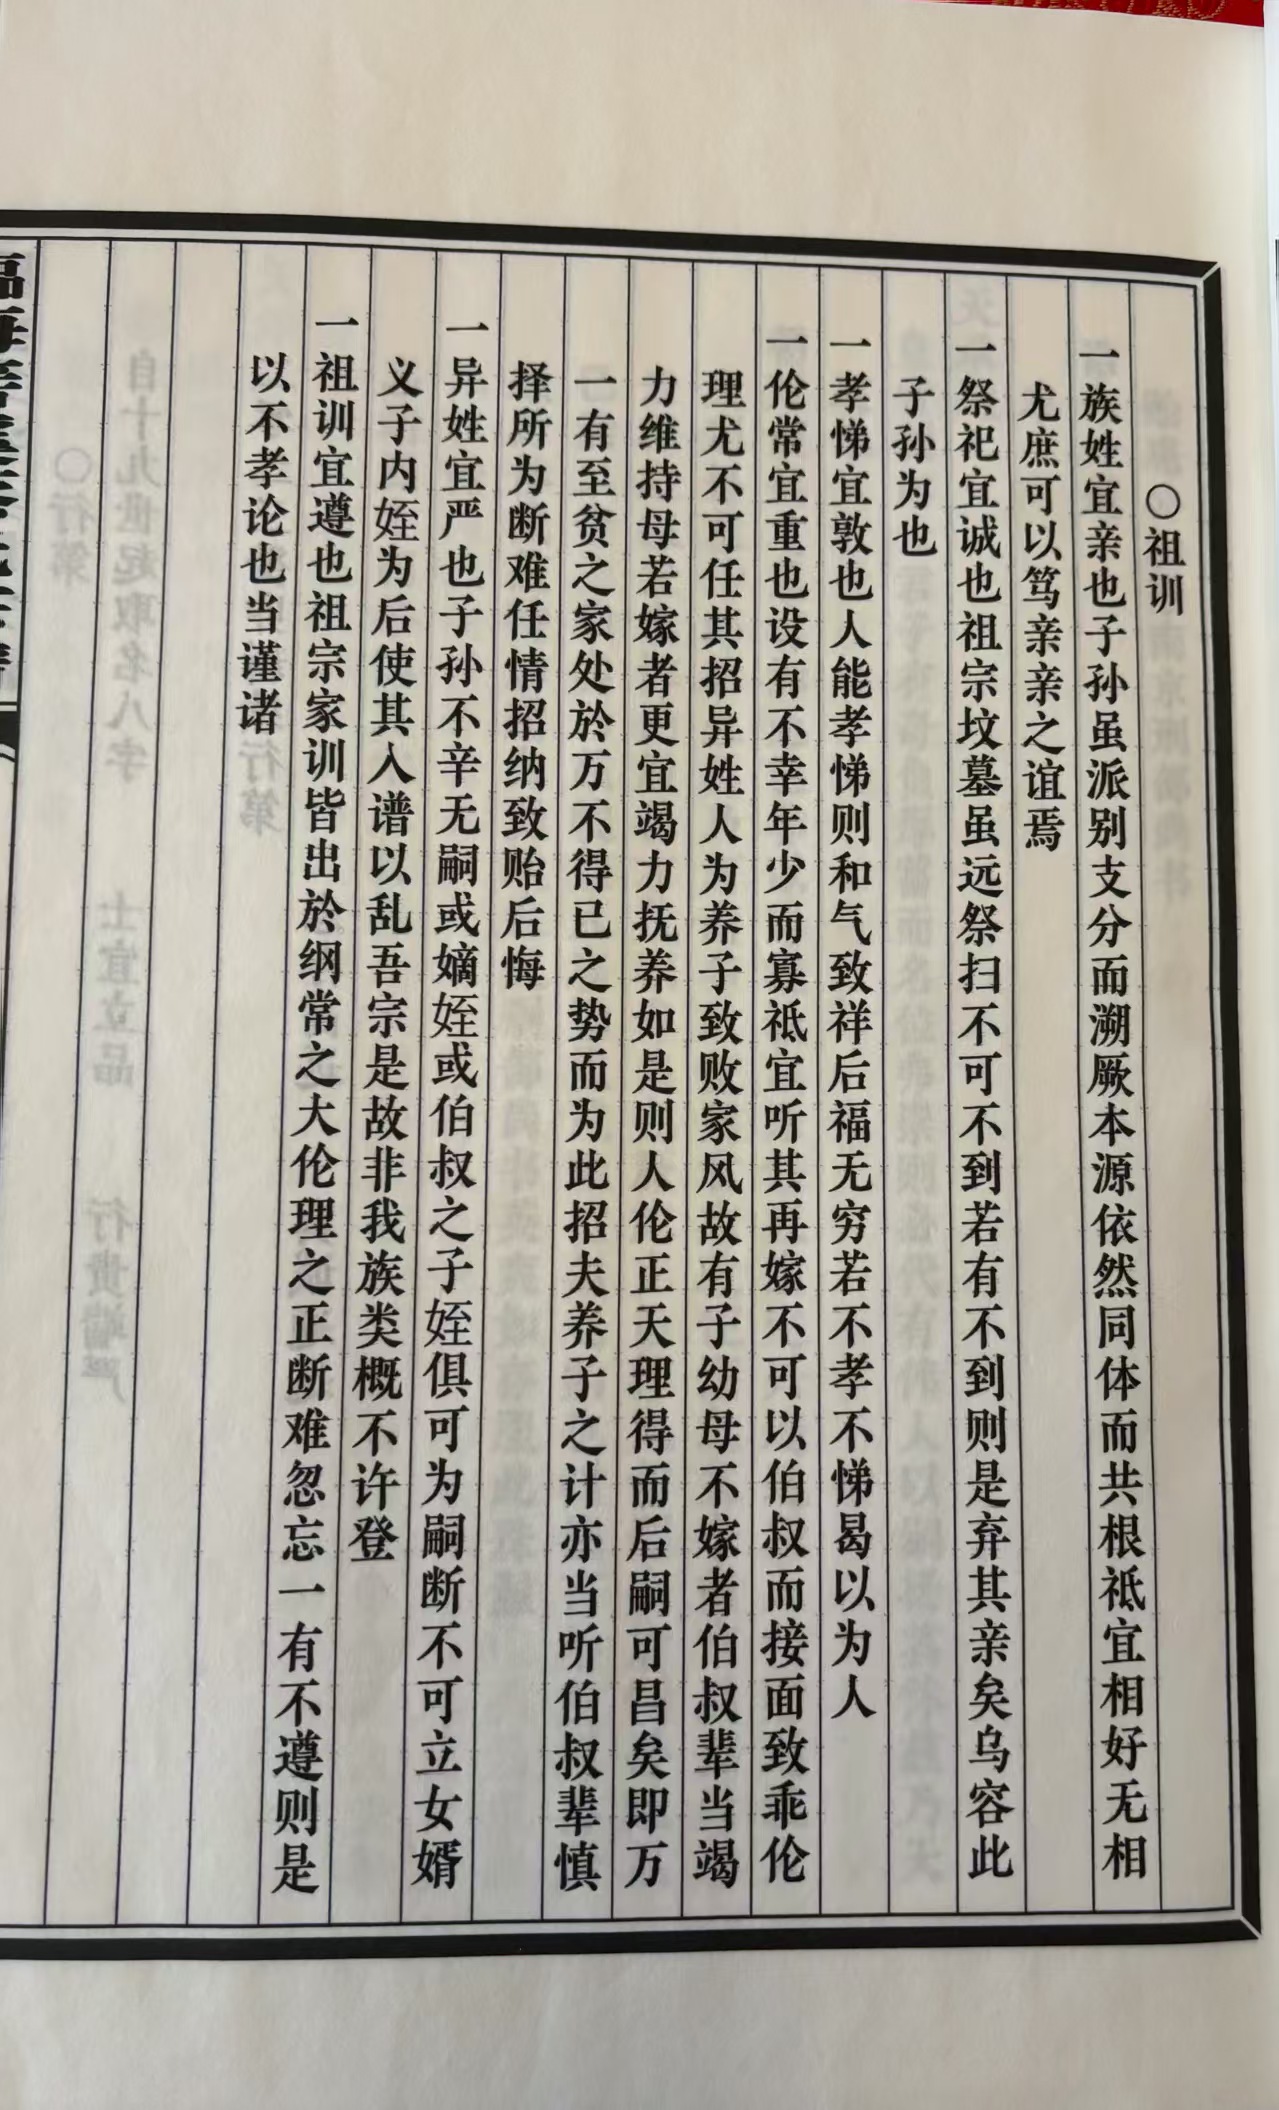 ○祖训
一族姓宜亲也子孙虽派别支分而溯厥本源依然同体而共根祗宜相好无相
尤庶可以笃亲亲之谊焉
一祭祀宜诚也祖宗坟墓虽远祭扫不可不到若有不到则是弃其亲矣乌容此
子孙为也
一孝悌宜敦也人能孝悌则和气致祥后福无穷若不孝不悌曷以为人
一伦常宜重也设有不幸年少而寡祗宜听其再嫁不可以伯叔而接面致乖伦
理尤不可任其招异姓人为养子致败家风故有子幼母不嫁者伯叔辈当竭
力维持母若嫁者更宜竭力抚养如是则人伦正天理得而后嗣可昌矣即万
一有至贫之家处於万不得已之势而为此招夫养子之计亦当听伯叔辈慎
择所为断难任情招纳致贻后悔
一异姓宜严也子孙不辛无嗣或嫡姪或伯叔之子姪俱可为嗣断不可立女婿
义子内姪为后使其入谱以乱吾宗是故非我族类概不许登
一祖训宜遵也祖宗家训皆出於纲常之大伦理之正断难忽忘一有不遵则是
以不孝论也当谨诸